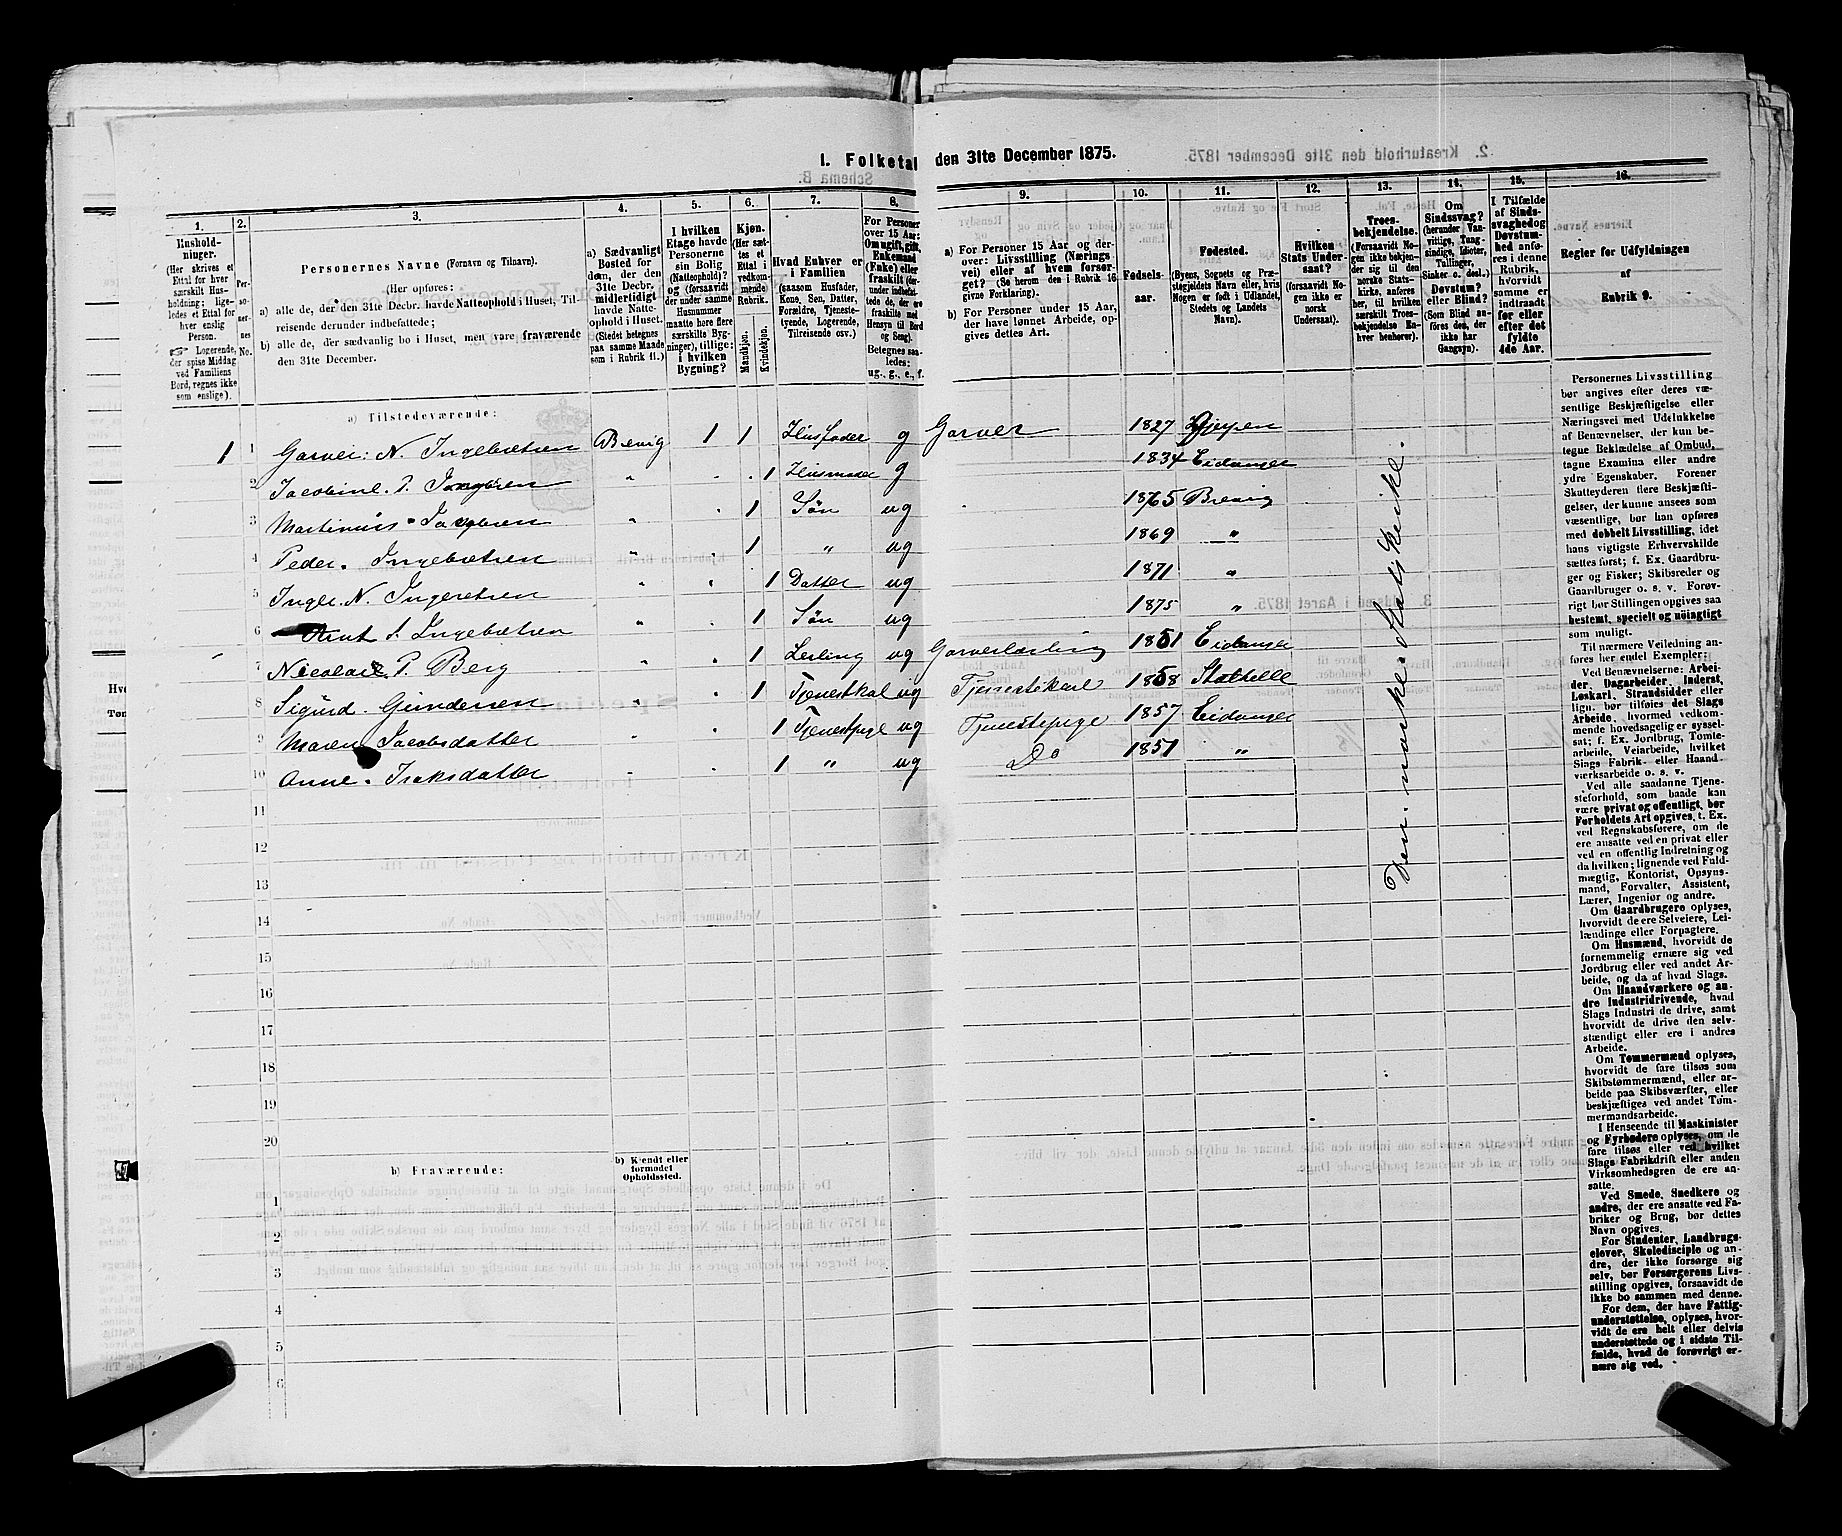 1. Folketal den 31te December 1875.
1.
Hushold-
ninger.
(Her skrives et
Ettal for hver
særskilt Hus-
holdning; lige-
ledes et Ettal for
hver enslig
Person.
☞ Logerende,
der spise Middag
ved Familiens
Bord, regnes ikke
som enslige).
2.
Per-
so-
ner-
nes
No.
3.
Personernes Navne (Fornavn og Tilnavn).
(Her opføres:
a) alle de, der den 31te Decbr. havde Natteophold i Huset, Til-
reisende derunder indbefattede;
b) alle de, der sædvanlig bo i Huset, men vare fraværende
den 31te December.
4.
a) Sædvanligt
Bosted for
dem, der den
31te Decbr.
midlertidigt
havde Natte-
ophold i Huset.
(Stedet betegnes
paa samme Maade
som i Rubrik 11.)
5.
I hvilken
Etage havde
Personerne
sin Bolig
(Natteophold)?
og (forsaavidt
der under samme
Husnummer
maatte høre flere
særskilte Byg-
ninger), tillige:
i hvilken
Bygning?
6.
Kjøn.
(Her sæt-
tes et
Ettal i
vedkom-
mende
Rubrik.
Mandkjøn.
Kvindekjøn.
7.
Hvad Enhver er
i Familien
(saasom Husfader,
Kone, Søn, Datter,
Forældre, Tjeneste-
tyende, Logerende,
Tilreisende osv.)
8.
For Personer
over 15 Aar:
Om ugift, gift,
Enkemand
(Enke) eller
fraskilt (der-
under indbefat-
tede de, der ere
fraskilte med
Hensyn til Bord
og Seng).
Betegnes saa-
ledes:
ug., g., e., f.
9.
a) For Personer 15 Aar og der-
over: Livsstilling (Nærings-
vei) eller af hvem forsør-
get? (Se herom den i Rubrik 16
givne Forklaring).
b) For Personer under 15 Aar,
der have lønnet Arbeide, op-
gives dettes Art.
10.
Fødsels-
aar.
11.
Fødested.
(Byens, Sognets og Præ-
stegjeldets Navn eller, hvis
Nogen er født i Udlandet,
Stedets og Landets
Navn).
12.
Hvilken
Stats Under-
saat?
(forsaavidt
Nogen ikke er
norsk
Undersaat).
13.
Troes-
bekjendelse.
(Forsaavidt No-
gen ikke bekjen-
der sig til den
norske Stats-
kirke, anføres
her, til hvilken
særskilt Troes-
bekjendelse En-
hver henhører).
14.
Om
Sindssvag?
(herunder Van-
vittige, Tung-
sindige, Idioter,
Tullinger,
Sinker o. desl.)
Døvstum?
eller Blind?
(Som Blind an-
føres den, der
ikke har
Gangsyn).
15.
I Tilfælde
af Sinds-
svaghed og
Døvstum-
hed anfø-
res i denne
Rubrik,
hvorvidt
samme er
indtraadt
før eller
efter det
fyldte
4de Aar.
16.
Regler for Udfyldningen
af
Rubrik 9.
a) Tilstedeværende:
1 1 Garver: N. Ingebretsen Brevig 1 1 Husfader g Garver 1827 Gjerpen
2 Jacobine. P. " . 1 Husmoder g 1834 Eidanger
3 Martinius " . 1 Søn ug 1865 Brevig
4 Peder. Ingebretsen " . 1 " ug 1869 "
5 " . 1 Datter ug 1871 "
6 Ingebretsen " . 1 Søn ug 1875 "
7 Nicolai P. Berg " . 1 Lerling ug Garverlærling 1851 Eidanger
8 Sigurd Gundersen " . 1 Tjenestkal ug Tjenestekarl 1858 Stathelle
9 Maren Jacobsdatter " . 1 Tjenestpige ug Tjenestepige 1857 Eidanger
10 Anne. Isaksdatter " . 1 " ug Do 1851 "
Den norske Statskirke.
11
12
13
14
15
16
17
18
19
20
b) Fraværende:
b) Kjendt eller
formodet
Opholdssted.
1
2
3
4
5
6
Personernes Livsstilling
bør angives efter deres væ-
sentlige Beskjæftigelse eller
Næringsvei med Udelukkelse
af Benævnelser, der kun be-
tegne Beklædelse af Ombud,
tagne Examina eller andre
ydre Egenskaber. Forener
Skatteyderen flere Beskjæfti-
gelser, der kunne ansees som
væsentlige, bør han opføres
med dobbelt Livsstilling, idet
hans vigtigste Erhvervskilde
sættes først; f. Ex. Gaardbru-
ger og Fisker; Skibsreder og
Gaardbruger o. s. v. Forøv-
rigt bør Stillingen opgives saa
bestemt, specielt og nøiagtigt
som muligt.
Til nærmere Veiledning an-
føres her endel Exempler:
Ved Benævnelserne: Arbei-
der, Dagarbeider, Inderst,
Løskarl, Strandsidder eller
lign. bør tilføies det Slags
Arbeide, hvormed vedkom-
mende hovedsagelig er syssel-
sat; f. Ex. Jordbrug, Tømte-
arbeide, Veiarbeide, hvilket
Slags Fabrik- eller Haand-
værksarbeide o. s. v.
Ved alle saadanne Tjene-
steforhold, som baade kan
være privat og offentligt, bør
Forholdets Art opgives, t. Ex.
ved Regnskabsførere, om de
ere ansatte ved en privat eller
ved en offentlig Indretning og
da hvilken; lignende ved Fuld-
mægtig, Kontorist, Opsyns-
mand, Forvalter, Assistent,
Lærer, Ingeniør og andre.
Om Gaardbrugere oplyses,
hvorvidt de ere Selveiere, Lei-
lændinge eller Forpagtere.
Om Husmænd, hvorvidt de
fornemmelig ernære sig ved
Jordbrug eller ved andet Ar-
beide, og da af hvad Slags.
Om Haandværkere og an-
dre Industridrivende, hvad
Slags Industri de drive, samt
hvorvidt de drive den selv-
stændigt eller ere i andres
Arbeide.
Om Tømmermænd oplyses,
hvorvidt de fare tilsøs som
Skibstømmermænd, eller ar-
beide paa Skibsværfter, eller
beskjæftiges ved andet Tøm-
mermandsarbeide.
I Henseende til Maskinister
og Fyrbødere oplyses, om de
fare tilsøs eller ved hvilket
Slags Fabrikdrift eller anden
Virksomhedsgren de ere an-
satte.
Ved Smede, Snedkere og
andre, der ere ansatte ved Fa-
briker og Brug, bør dettes
Navn opgives.
For Studenter, Landbrugs-
elever, Skoledisciple og an-
dre, der ikke forsørge sig
selv, bør Forsørgerens Livs-
stilling opgives, forsaavidt de
ikke bo sammen med denne.
For dem, der have Fattig-
understøttelse, oplyses, hvor-
vidt de ere helt eller delvis
understøttede og i sidste Til-
fælde, hvad de forøvrigt er-
nære sig ved.